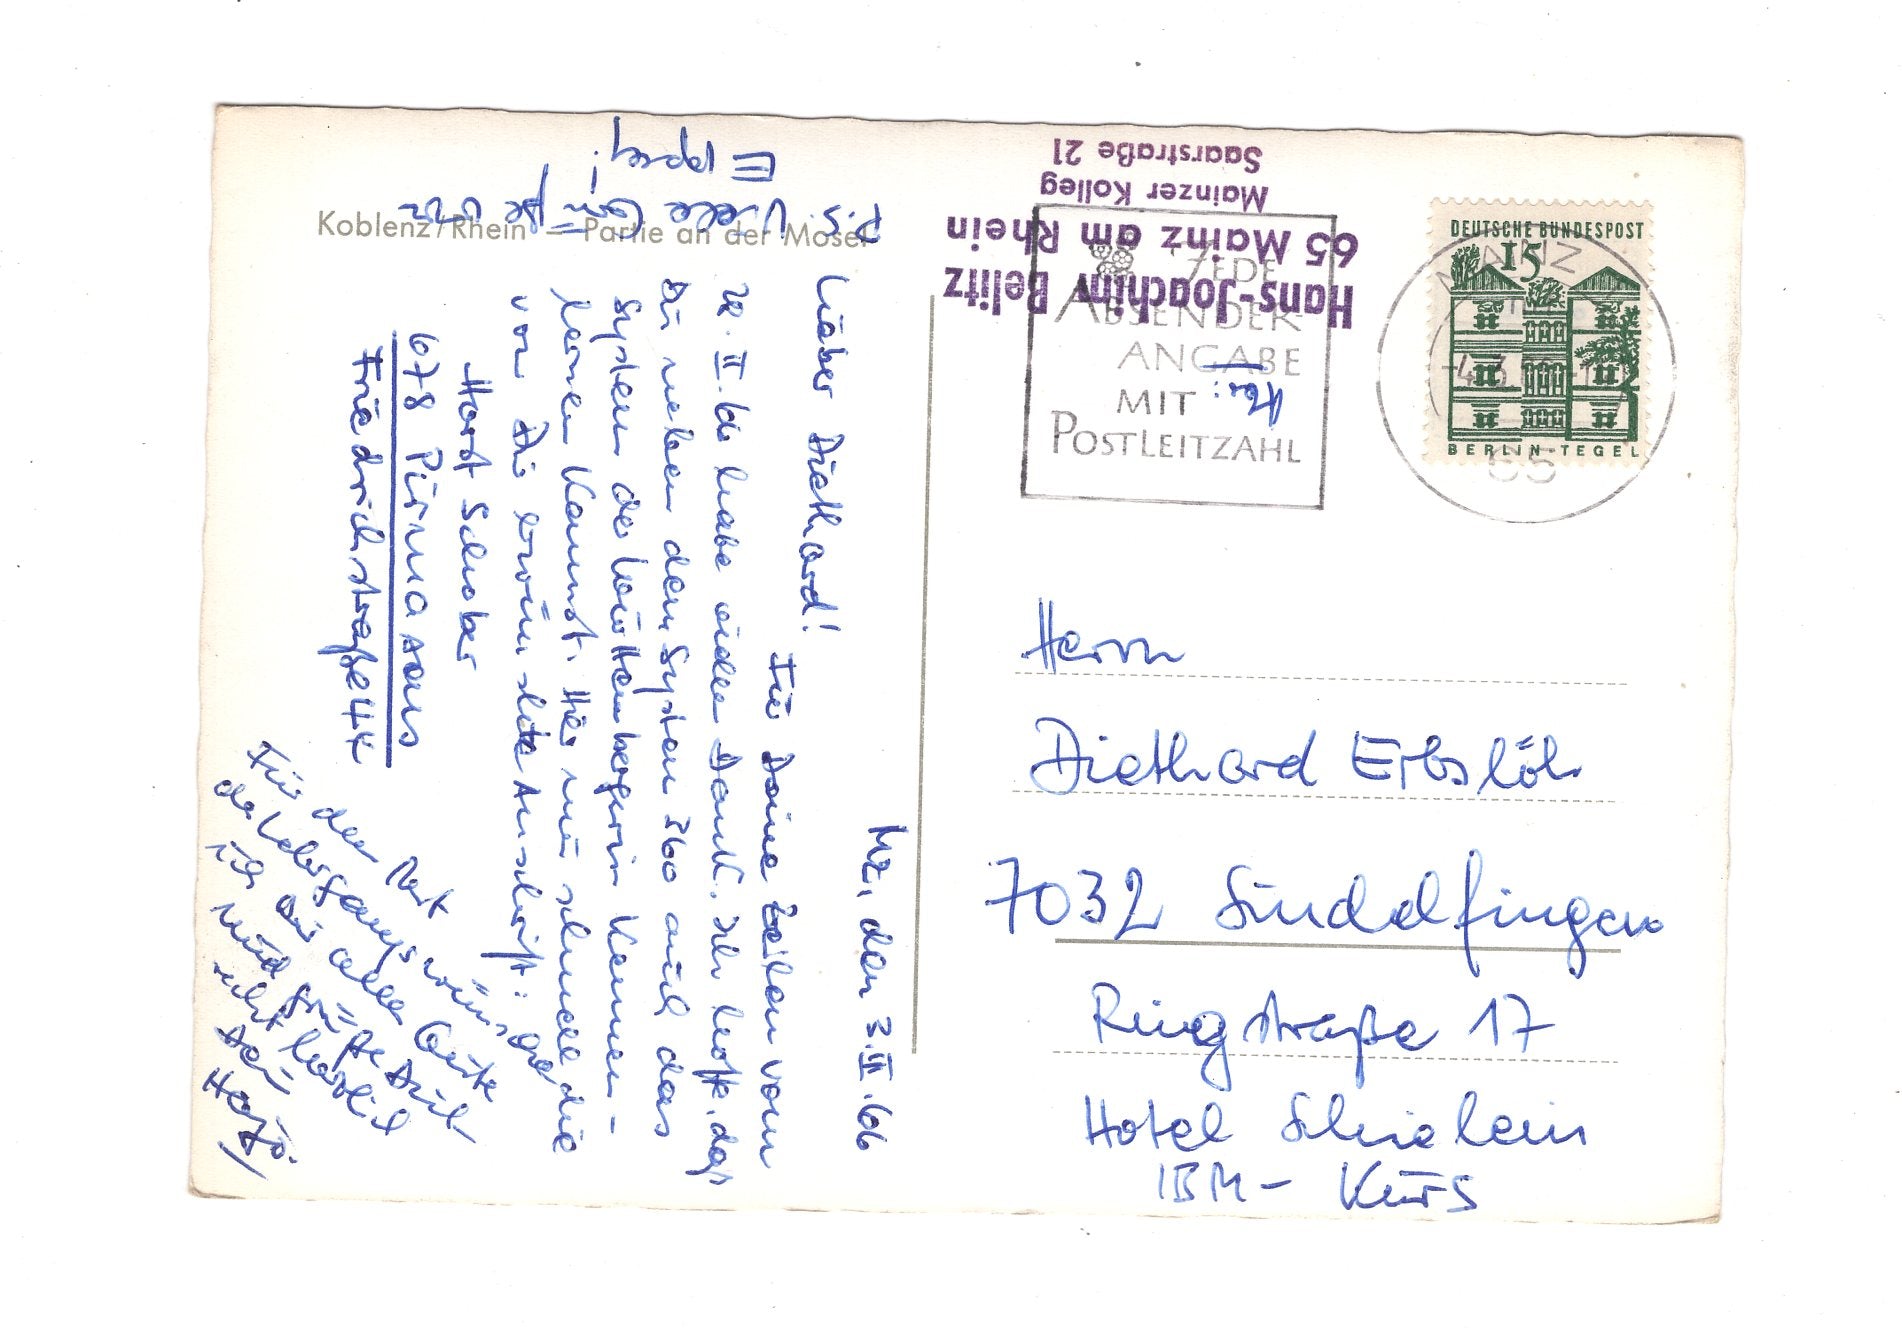 Koblenz/Rhein – Partie an der Mosel
Mz, den 3.III.66
Lieber Diethard!
Für Deine Zeilen vom
II. 66 habe vielen Dank. Ich hoffe, daß
Du neben dem System 360 auch das
System der Württembergerin kennen-
lernen kannst. Hier nur schnell die
von Dir erwünschte Anschrift:
Horst Schober
678 Pirmasens
Friedrichstraße 44
Für den Rest
des Lehrgangs wünsche
ich Dir alles Gute
und grüße Dich
recht herzlich
Dein
Hajo.
P.S. Viele Grüße von
!
Hans-Joachim Belitz
65 Mainz am Rhein
Mainzer Kolleg
Saarstraße 21
JEDE
ABSENDER
ANGABE
MIT
POSTLEITZAHL
MAINZ
65
DEUTSCHE BUNDESPOST
15
BERLIN-TEGEL
Herrn
Diethard Erbslöh
7032 Sindelfingen
Ringstraße 17
Hotel Schielein
IBM- Kurs